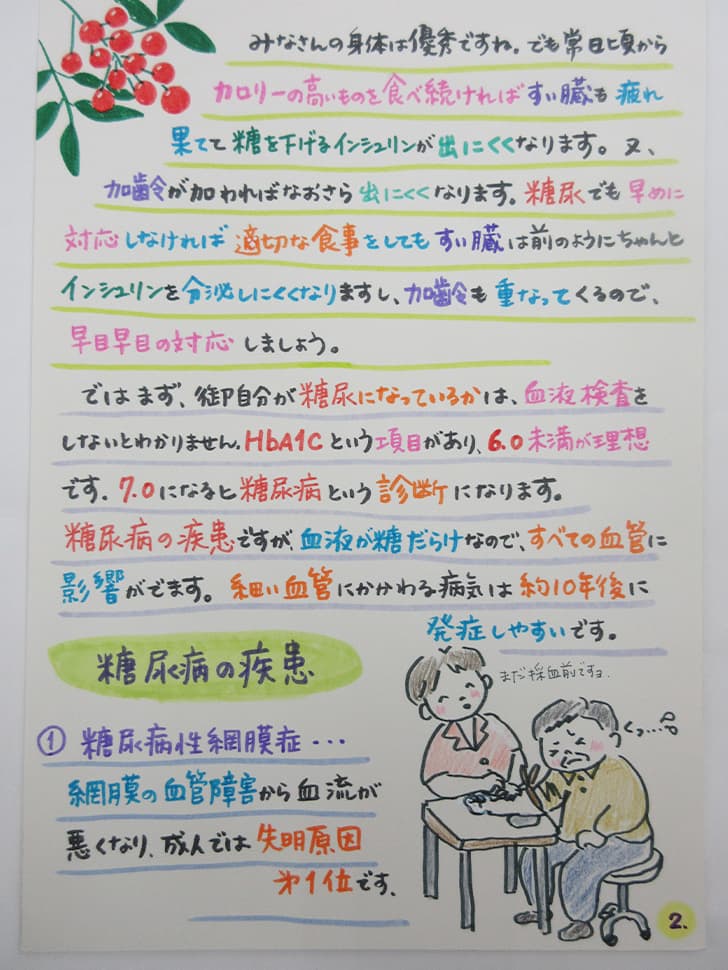 みなさんの身体は優秀ですね。でも常日頃から
カロリーの高いものを食べ続ければすい臓も疲れ
果てて糖を下げるインシュリンが出にくくなります。又、
加齢が加わればなおさら出にくくなります。糖尿でも早めに
対応しなければ適切な食事をしてもすい臓は前のようにちゃんと
インシュリンを分泌しにくくなりますし、加齢も重なってくるので、
早目早目の対応しましょう。
ではまず、御自分が糖尿になっているかは、血液検査を
しないとわかりません。HbA1Cという項目があり、6.0未満が理想
です。7.0になると糖尿病という診断になります。
糖尿病の疾患ですが、血液が糖だらけなので、すべての血管に
影響がでます。細い血管にかかわる病気は約10年後に
発症しやすいです。
糖尿病の疾患
まだ採血前ですヨ.
くっ…
① 糖尿病性網膜症・・・
網膜の血管障害から血流が
悪くなり、成人では失明原因
第1位です。
2.